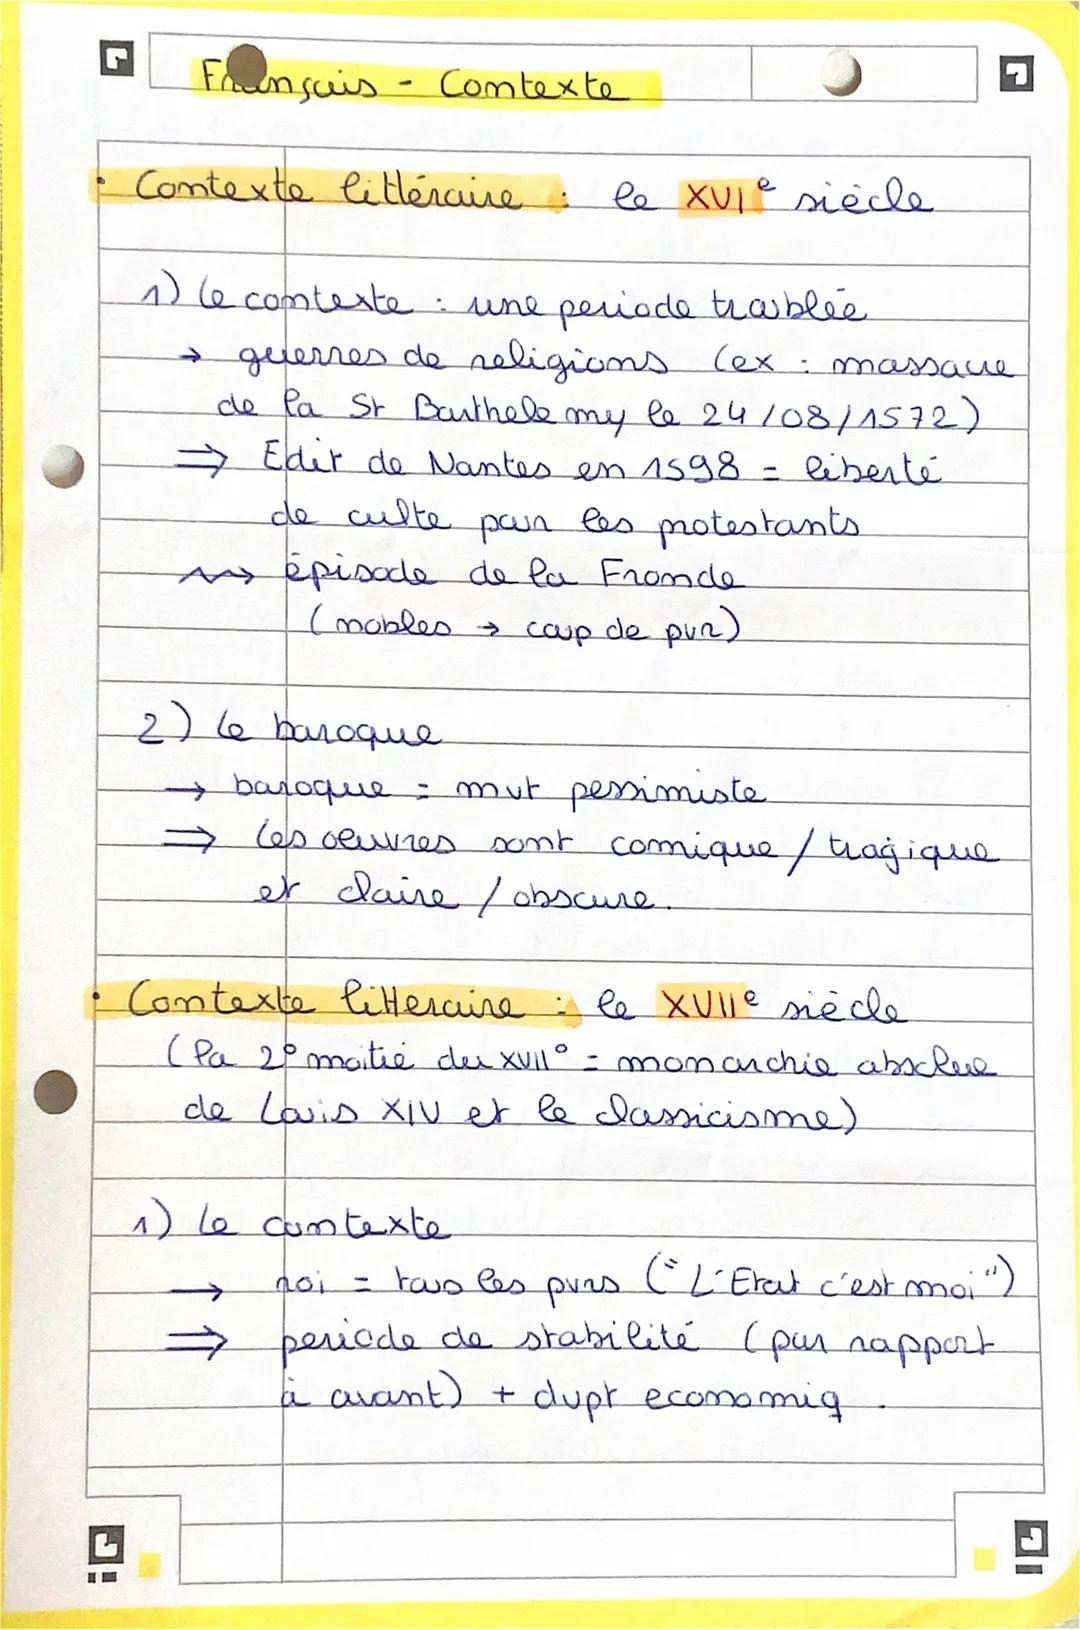 Français - Contexte
• Contexte littéraire : le XVIe siècle
1) le contexte : une periode troublée
→ guerres de religions (ex : massacre
de la St Barthelemy le 24/08/1572)
⇒ Edit de Nantes en 1598 = liberté
de culte pour les protestants
⇝ épisode de la Fronde
(nobles → coup de pvr)
2) le baroque
→ baroque = mvt pessimiste
⇒ les œuvres sont comique / tragique
et claire / obscure.
• Contexte litteraire : le XVIIe siècle
(la 2° moitié du XVII° = monarchie absolue
de Louis XIV et le classicisme)
1) le contexte
→ roi = tous les pvrs ("L'Etat c'est moi")
⇒ periode de stabilité (par rapport
à avant) + dvpt economiq.